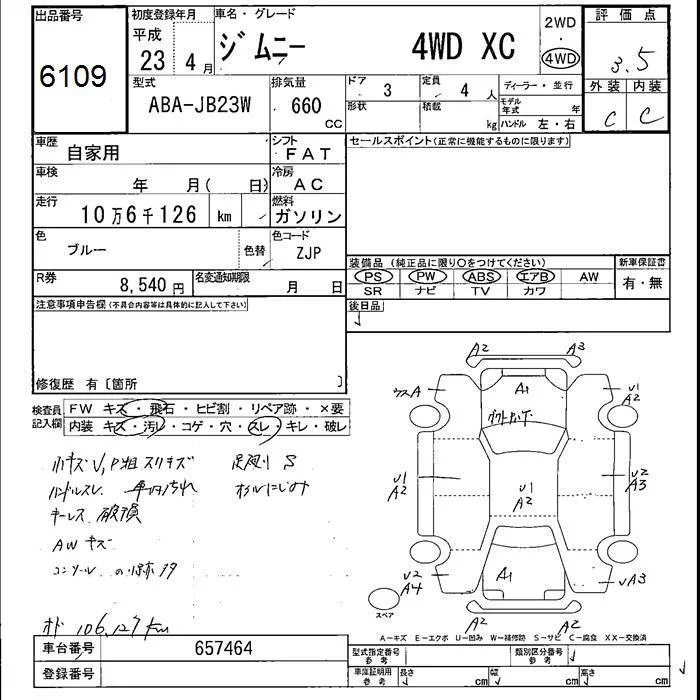 出品番号
6109
初度登録年月
平成
23 4月
車名・グレード
ジムニー 4WD XC
2WD
4WD
評価点
3.5
外装 内装
C C
型式
ABA-JB23W
排気量
660
CC
ドア 3
定員 4 人
形状
積載 kg
ディーラー・並行
モデル年式 年
ハンドル 左・右
車歴
自家用
シフト
FAT
セールスポイント(正常に機能するものに限ります)
車検
年 月( 日)
冷房
AC
走行
10万6千126 km
燃料
ガソリン
色
ブルー
色替
色コード
ZJP
装備品 (純正品に限り○をつけてください)
PS PW ABS エアB AW
SR ナビ TV カワ
新車保証書
有・無
R券
8,540円
名変通知期限
月 日
後日品
注意事項申告欄(不具合内容等は具体的に記入して下さい)
修復歴 有〔箇所 〕
検査員記入欄
FW キズ・飛石・ヒビ割・リペア跡・×要
内装 キズ・汚れ・コゲ・穴・スレ・キレ・破レ
小キズV,P
S
ハンドルスレ 車内汚れ
オイルにじみ
キーレス 破損
AW キズ
A2 A3
A1
V1
A2
V1
A2
V1
A2
V2
A3
A1
V2
A4
VA3
スペア
A2 A2
106,127km
A-キズ E-エクボ U-凹み W-補修跡 S-サビ C-腐食 XX-交換済
車台番号
657464
登録番号
型式指定番号
参考
類別区分番号
参考
車庫証明用
参考
長さ cm
幅 cm
高さ cm